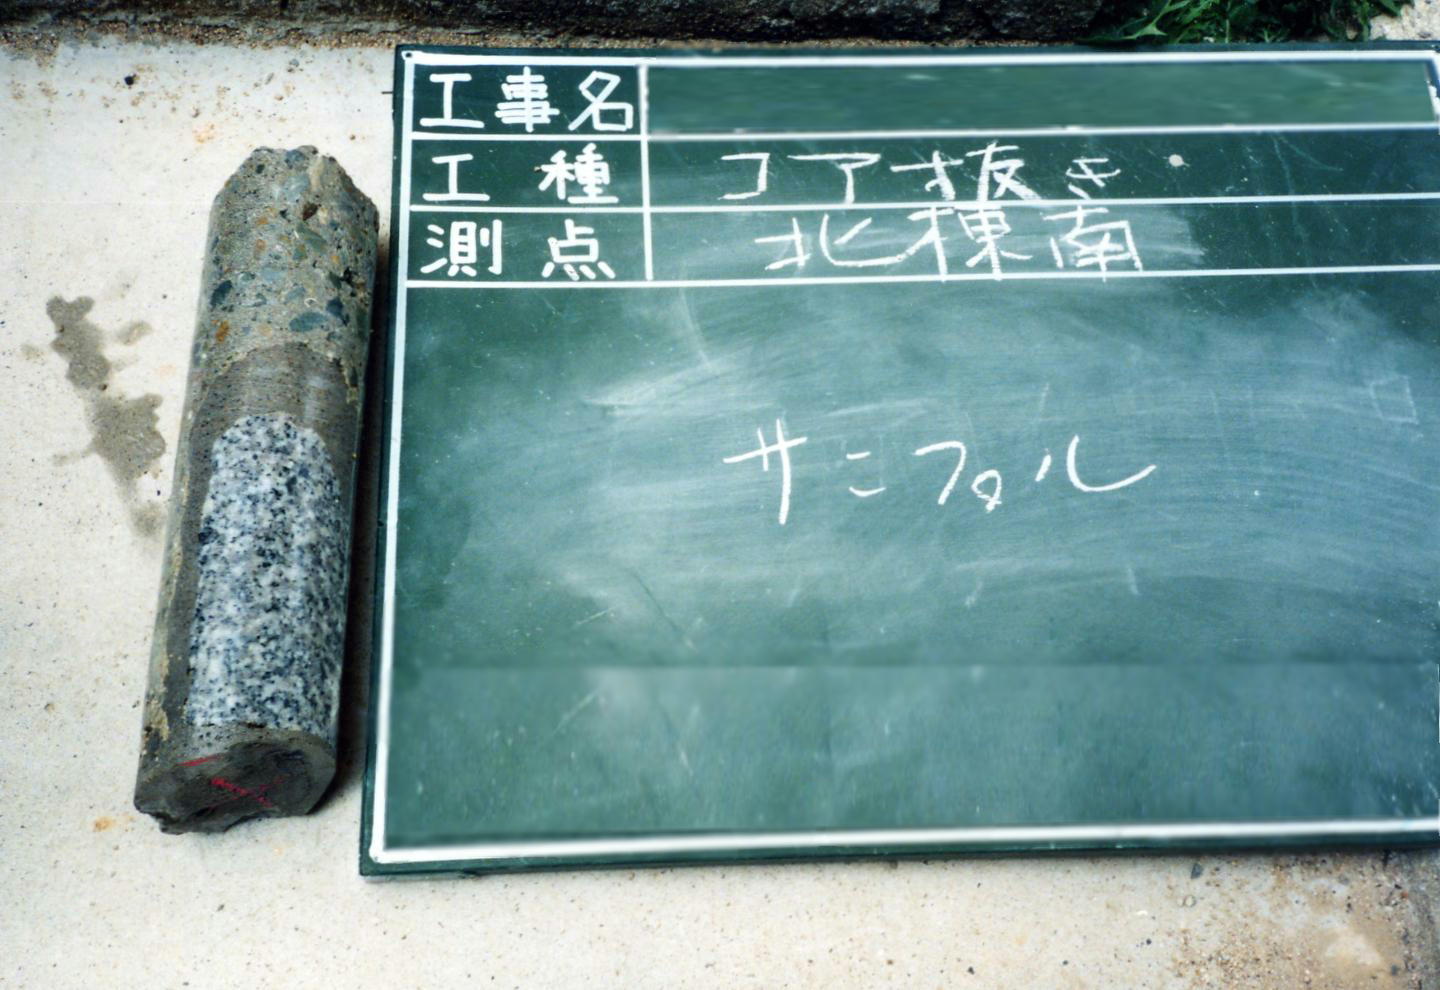 工事名
工種 コア抜き
測点 北棟南
サンプル